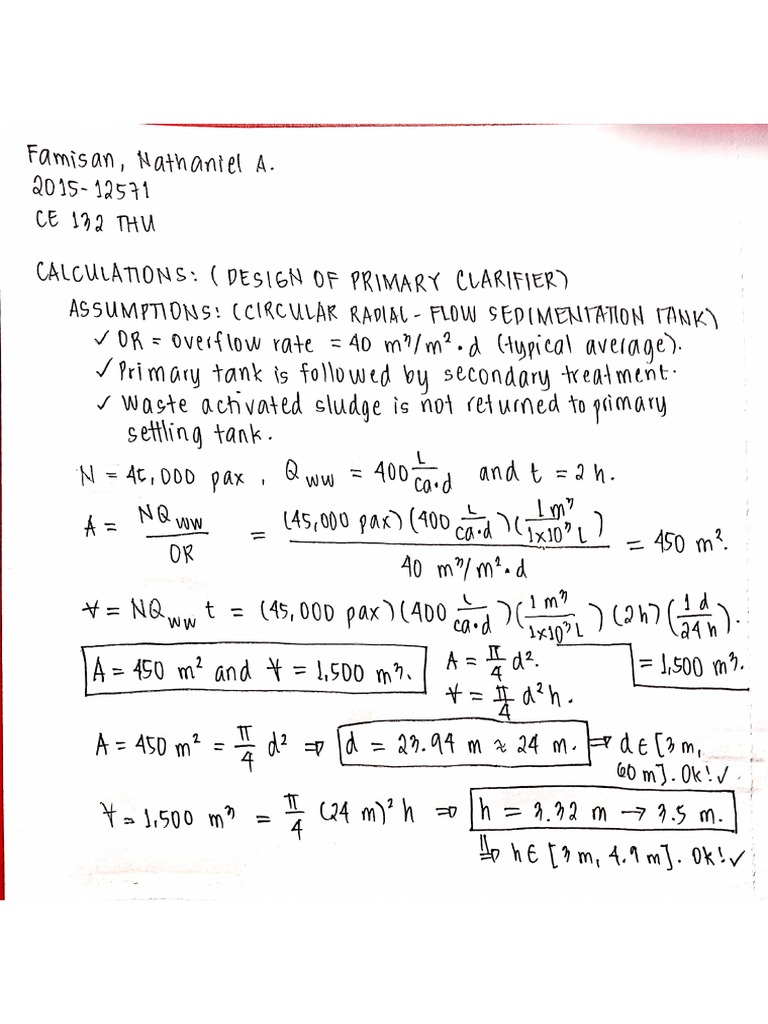 Famisan, Nathaniel A.
2015-12571
CE 132 THU
CALCULATIONS: (DESIGN OF PRIMARY CLARIFIER)
ASSUMPTIONS: (CIRCULAR RADIAL-FLOW SEDIMENTATION TANK)
✓ OR = overflow rate = 40 m³/m²·d (typical average).
✓ Primary tank is followed by secondary treatment.
✓ Waste activated sludge is not returned to primary
settling tank.
N = 45,000 pax, Q_ww = 400 L/ca·d and t = 2h.
A = NQ_ww/OR = (45,000 pax)(400 L/ca·d)(1 m³/1x10³ L)/40 m³/m²·d = 450 m².
V = NQ_ww t = (45,000 pax)(400 L/ca·d)(1 m³/1x10³ L)(2h)(1 d/24 h).
= 1,500 m³.
A = 450 m² and V = 1,500 m³.
A = π/4 d².
V = π/4 d²h.
A = 450 m² = π/4 d² ⇒ d = 23.94 m ≈ 24 m. ⇒ d ∈ [3 m,
60 m]. Ok! ✓
V = 1,500 m³ = π/4 (24 m)² h ⇒ h = 3.32 m → 3.5 m.
⇒ h ∈ [3 m, 4.9 m]. Ok! ✓